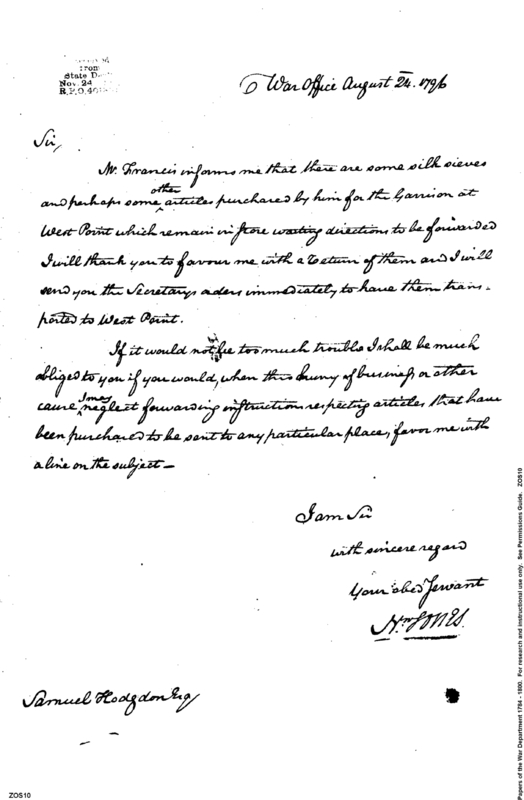 from
State Dept
Nov. 24
R.P.O. 40
War Office August 24. 1796
Sir,
Mr. Francis informs me that there are some silk sieves
and perhaps some other articles purchased by him for the Garrison at
West Point which remain in store waiting directions to be forwarded
I will thank you to favour me with a return of them and I will
send you the Secretarys orders immediately to have them trans-
ported to West Point.
If it would not be too much trouble I shall be much
obliged to you if you would, when thro hurry of business or other
cause I may neglect forwarding instructions respecting articles that have
been purchased to be sent to any particular place, favor me with
a line on the subject—
I am Sir
with sincere regard
Your obed Servant
Wm JONES.
Samuel Hodgdon Esq
ZOS10
Papers of the War Department 1784 - 1800. For research and instructional use only. See Permissions Guide. ZOS10